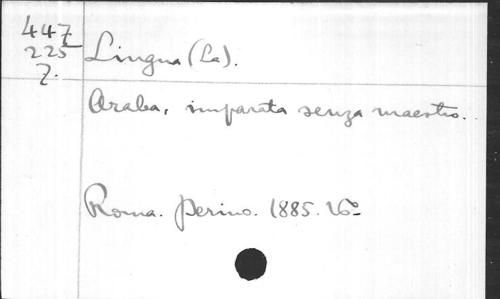 447
225
7.
Lingua (La).
Araba, imparata senza maestro.
Roma. Perino. 1885. 16º